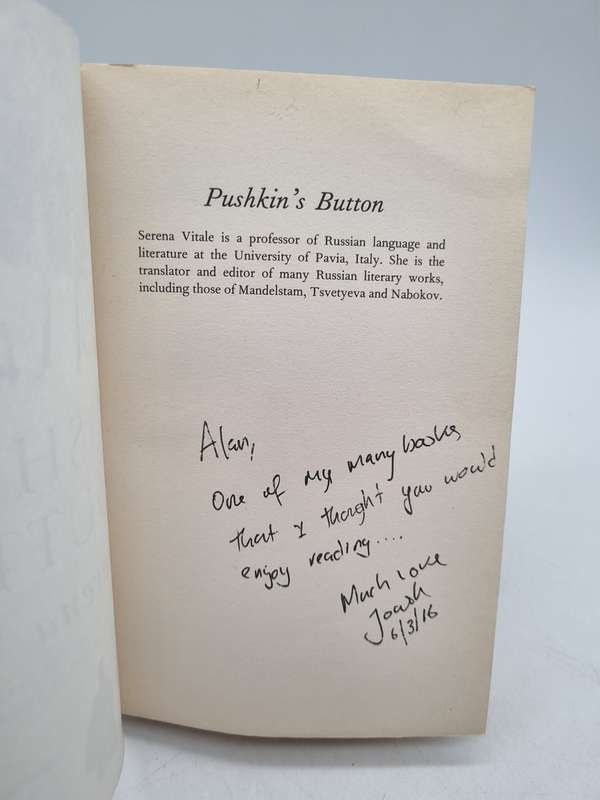 Pushkin's Button
Serena Vitale is a professor of Russian language and
literature at the University of Pavia, Italy. She is the
translator and editor of many Russian literary works,
including those of Mandelstam, Tsvetyeva and Nabokov.
Alan,
One of my many books
that I thought you would
enjoy reading....
Much love
6/3/16